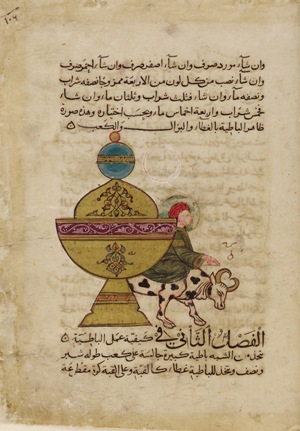 وان شآء مورد صرف وان شآء اصفر صرف وان شآء احمر صرف
وان شآء نصب من كل لون من الاربعة ممزوجا نصفه شراب
ونصفه مآء وان شآء فثلث شراب وثلثان مآء وان شآء
فخمس شراب واربعة اخماس مآء وبحسب اختياره وهذه صورة
ظاهر الباطية بالغطاء والبزال والكعب ٥
الفصل الثاني في كيفية عمل الباطية ٥
تتخذ من الشبه باطية كبيرة جالسة على كعب طوله شبر
ونصف ويتخذ للباطية غطاء كالقبة وعلى القبة كرة مقطوعة